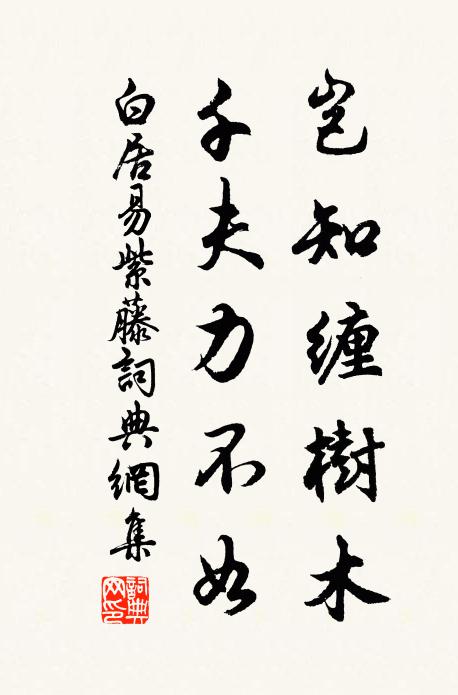 豈知纏樹木
千夫力不如
白居易紫藤詞典網集
詞典網印